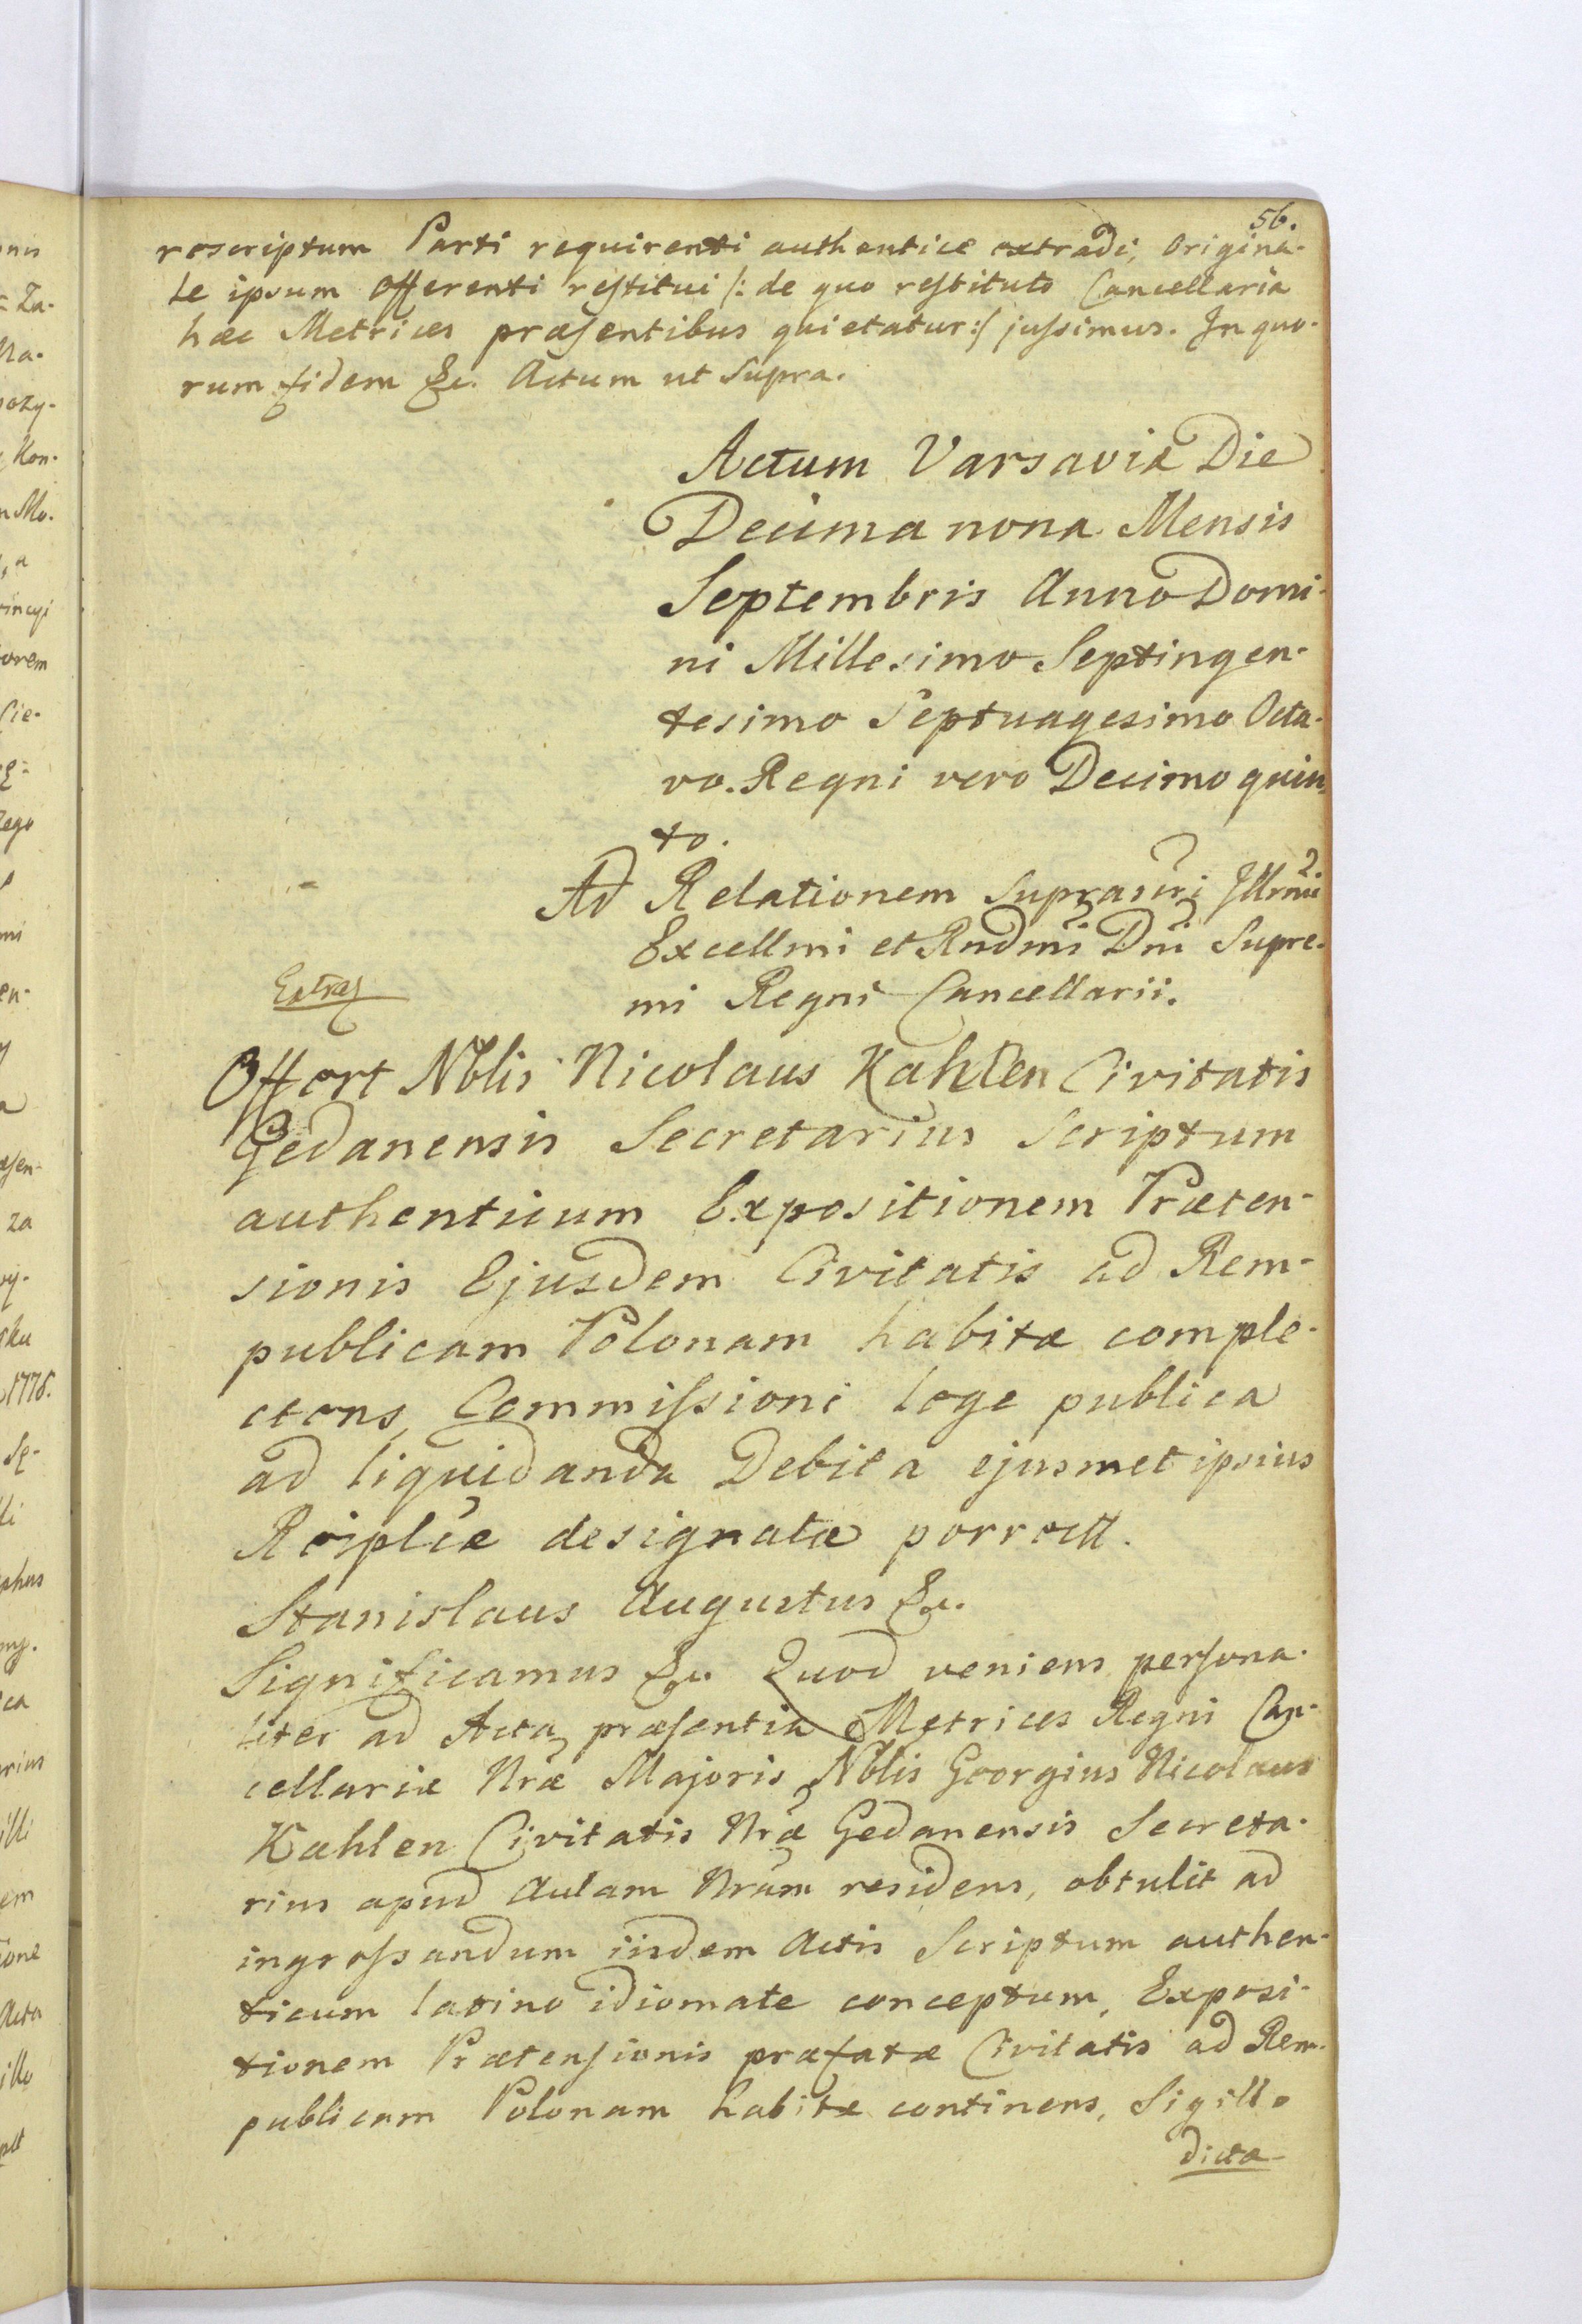 56.
roscriptum Parti requirenti authentice extradi, Origina-
le ipsum Offerenti restitui /: de quo restituto Cancellaria
hæc Metrices præsentibus quietatur :/ jussimus. In quo-
rum fidem &c. Actum ut Supra.
Actum Varsaviæ Die
Decima nona Mensis
Septembris Anno Domi-
ni Millesimo Septingen-
tesimo Septuagesimo Octa-
vo. Regni vero Decimo quin-
to.
Ad Relationem Suprascri Illrmi
Excellmi et Rndmi Dni Supre-
mi Regni Cancellarii.
Extrad
Offert Nblis Nicolaus Kahlen Civitatis
Gedanensis Secretarius Scriptum
authenticum Expositionem Præten-
sionis Ejusdem Civitatis ad Rem-
publicam Polonam habitæ comple-
ctens, Commissioni lege publica
ad liquidanda Debita ejusmet ipsius
Reiplicæ designatæ porrectt.
Stanislaus Augustus &c.
Significamus &c. Quod veniens persona-
liter ad Acta præsentia Metrices Regni Can-
cellariæ Nræ Majoris Nblis Georgius Nicolaus
Kahlen Civitatis Nræ Gedanensis Secreta-
rius apud Aulam Nram residens, obtulit ad
ingrossandum iisdem Actis Scriptum authen-
ticum latino idiomate conceptum, Exposi-
tionem Prætensionis præfatæ Civitatis ad Rem-
publicam Polonam habitæ continens, Sigillo
dictæ